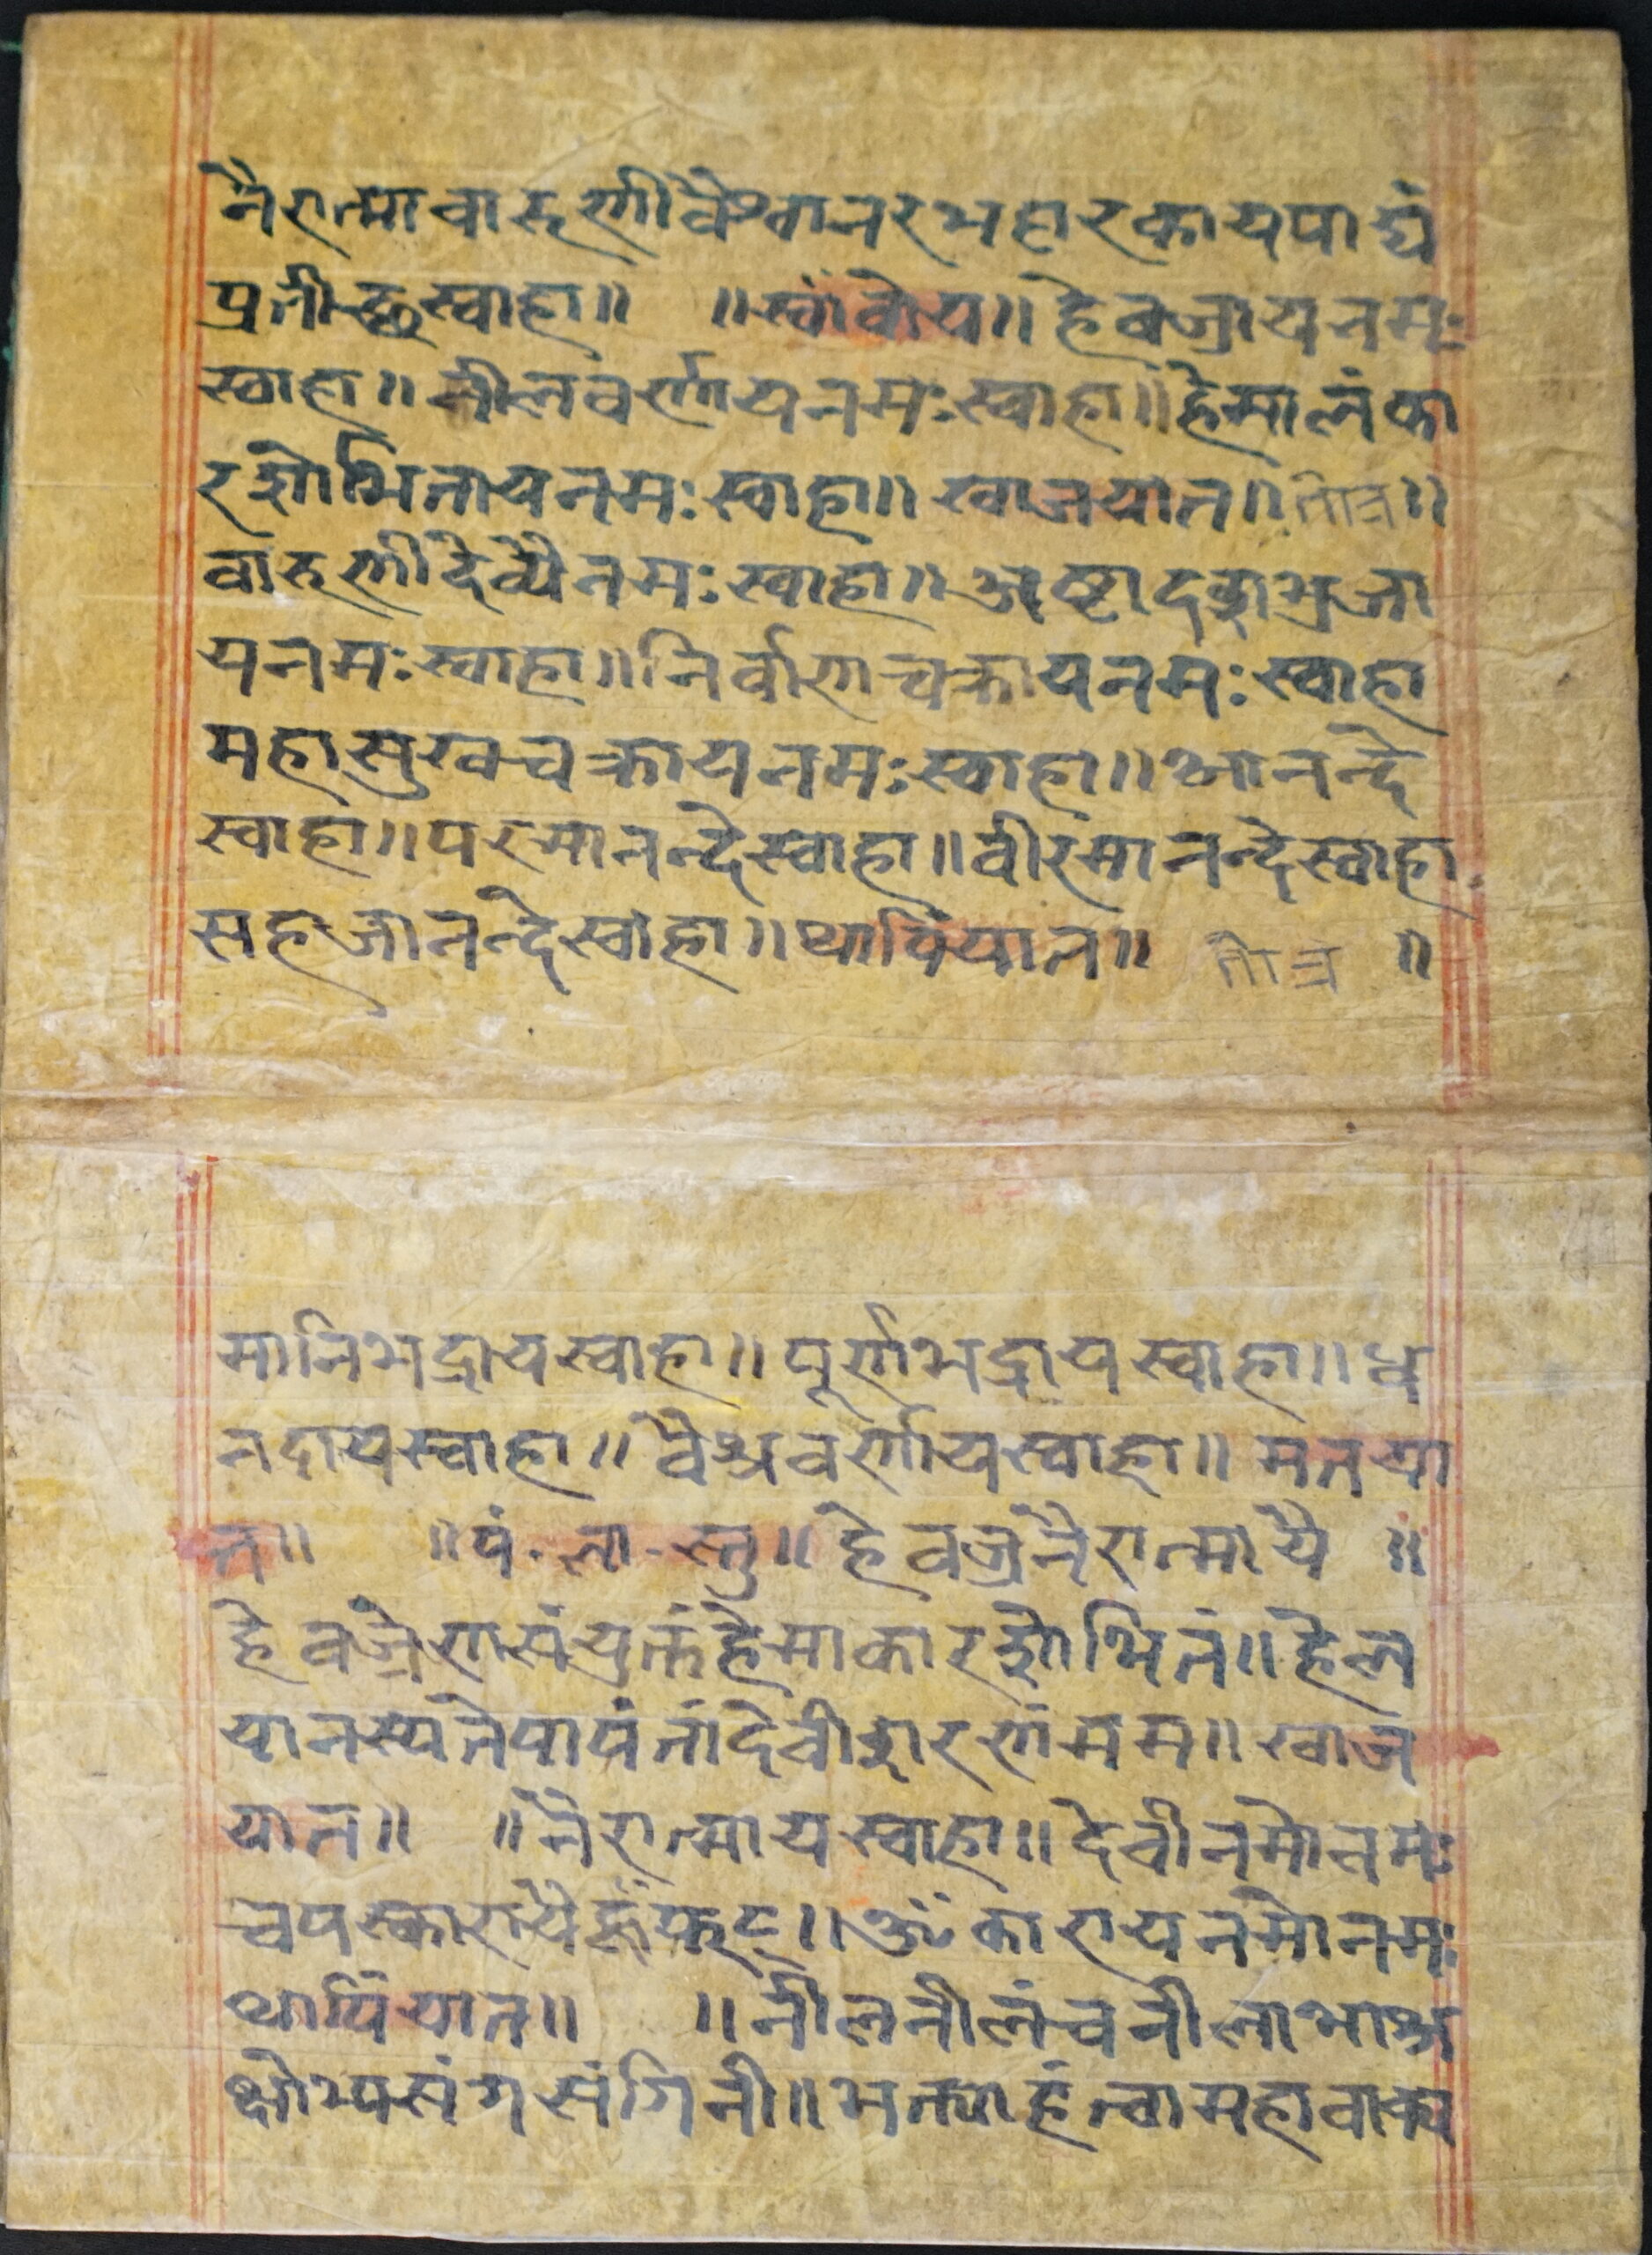 नैरात्मा वारुणी वैश्वानर भट्टारकाय पाद्यं
प्रतीच्छ स्वाहा॥ ॥स्वां वोय॥ हेवज्राय नमः
स्वाहा॥ नीलवर्णाय नमः स्वाहा॥ हेमालंका
रशोभिताय नमः स्वाहा॥ खाजयात॥ तोत्र॥
वारुणीदेव्यै नमः स्वाहा॥ अष्टादशभुजा
य नमः स्वाहा॥ निर्वाणचक्राय नमः स्वाहा
महासुखचक्राय नमः स्वाहा॥ आनन्दे
स्वाहा॥ परमानन्दे स्वाहा॥ वीरमानन्दे स्वाहा
सहजानन्दे स्वाहा॥ थापिंयात॥ तोत्र ॥
मानिभद्राय स्वाहा॥ पूर्णभद्राय स्वाहा॥ ध
नदाय स्वाहा॥ वैश्रवर्णाय स्वाहा॥ मतया
त॥ ॥पं ला स्तु॥ हेवज्रनैरात्मायै ॥
हेवज्रेण संयुक्तं हेमाकारशोभितं॥ हेल
यानस्यते पापं तां देवी शरणं मम॥ खाज
यात॥ ॥नैरात्माय स्वाहा॥ देवी नमो नमः
चपस्कारायै हूँ फट्॥ ॐकाराय नमो नमः
थापिंयात॥ ॥नील नीलं च नीलाभा अ
क्षोभ्य संग संगिनी॥ भक्त्याहं त्वा महावाक्य